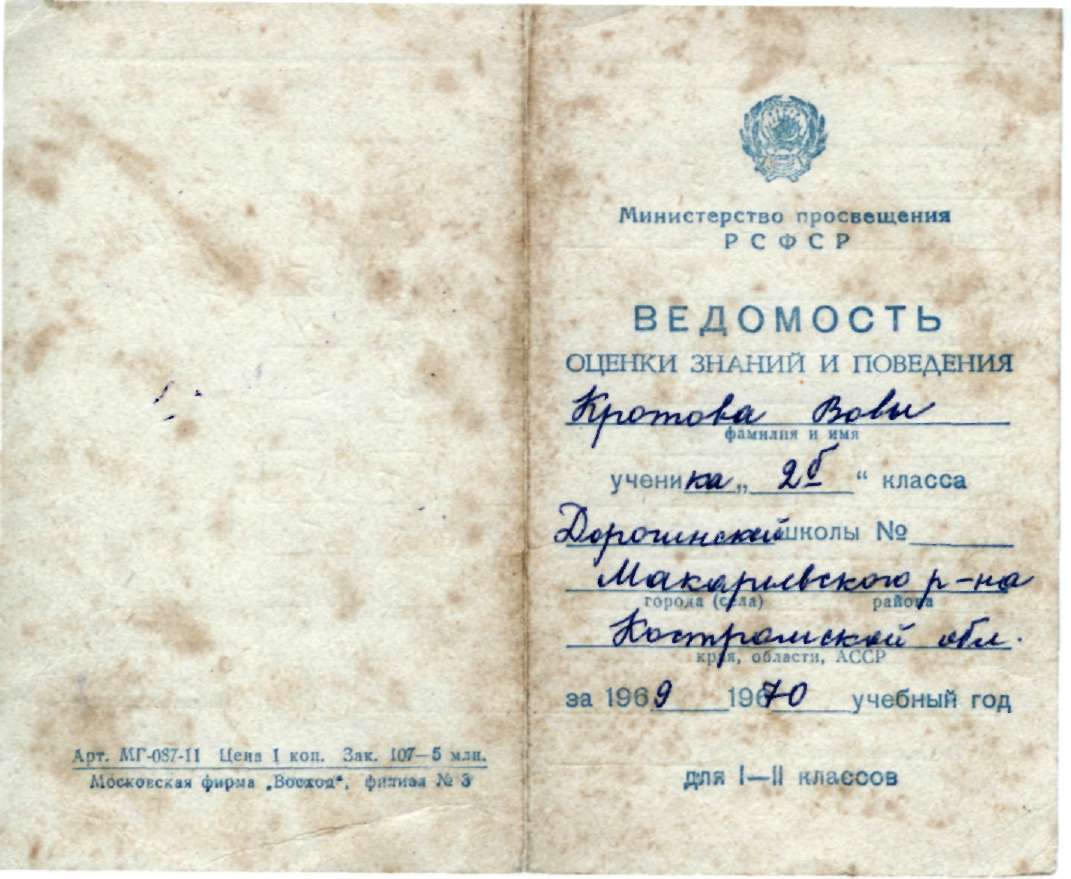 Арт. МГ-087-11 Цена 1 коп. Зак. 107—5 млн.
Московская фирма „Восход“, филиал № 3
Министерство просвещения
РСФСР
ВЕДОМОСТЬ
ОЦЕНКИ ЗНАНИЙ И ПОВЕДЕНИЯ
Кротова Вовы
фамилия и имя
ученика „ 2б “ класса
Дорогинской школы №
Макарьевского р-на
города (села) района
Костромской обл.
края, области, АССР
за 1969 1970 учебный год
для I—II классов